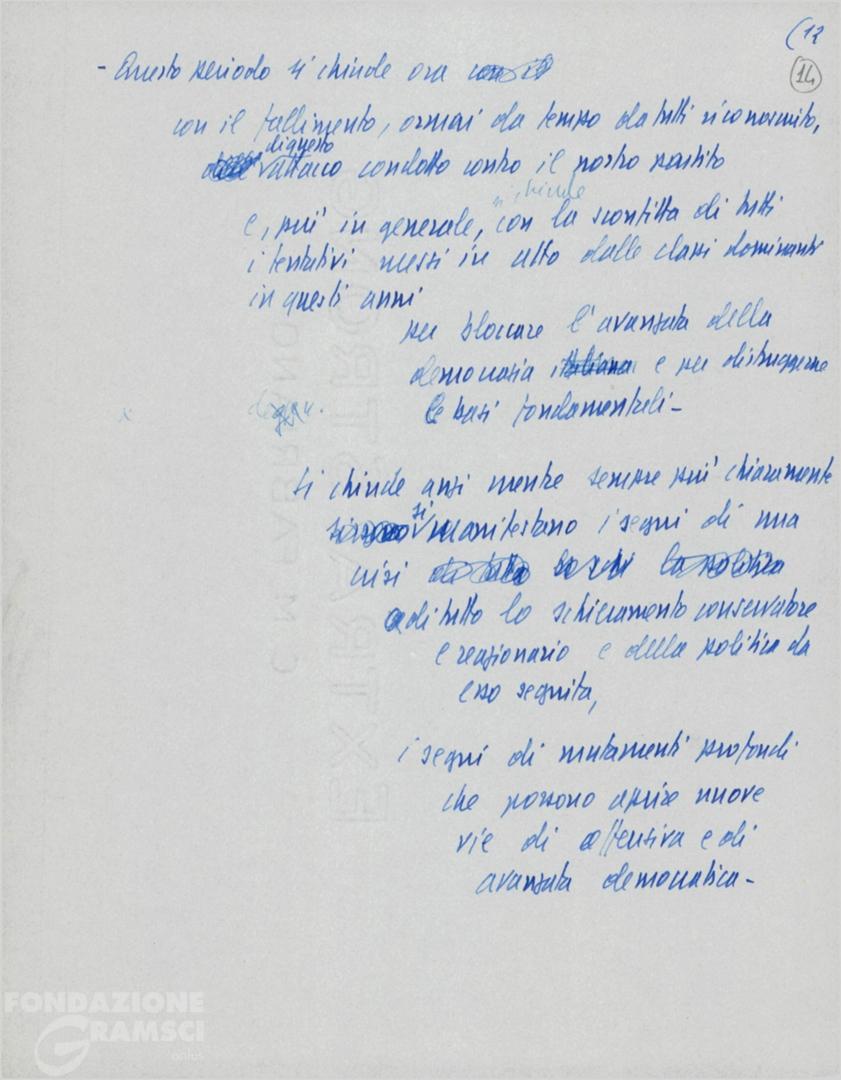 (12
14
- Questo periodo si chiude ora con il
con il fallimento, ormai da tempo da tutti riconosciuto,
di questo
attacco condotto contro il nostro partito
si chiude
e, più in generale, con la sconfitta di tutti
i tentativi messi in atto dalle classi dominanti
in questi anni
per bloccare l'avanzata della
democrazia italiana e per distruggerne
le basi fondamentali -
Si chiude anzi mentre sempre più chiaramente
si
manifestano i segni di una
crisi di tutto la politica
di tutto lo schieramento conservatore
e reazionario e della politica da
esso seguita,
i segni di mutamenti profondi
che possono aprire nuove
vie di offensiva e di
avanzata democratica -
C. M. FABRIANO
EXTRA STRONG
FONDAZIONE
GRAMSCI
onlus